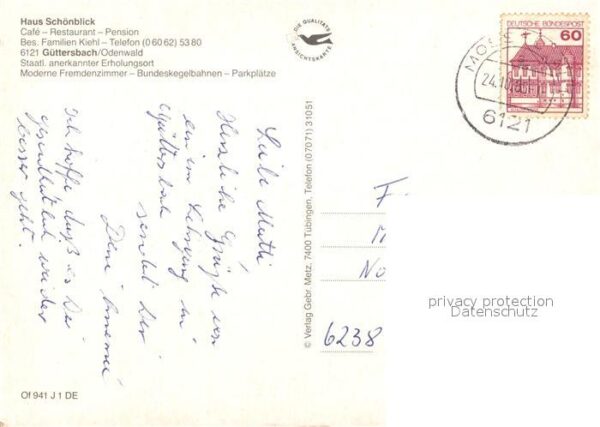 Haus Schönblick
Café – Restaurant – Pension
Bes. Familien Kiehl – Telefon (0 60 62) 53 80
6121 Güttersbach/Odenwald
Staatl. anerkannter Erholungsort
Moderne Fremdenzimmer – Bundeskegelbahnen – Parkplätze
DIE QUALITÄTS
ANSICHTSKARTE
DEUTSCHE BUNDESPOST
60
24.10.
6121
Liebe Mutti
Herzliche Grüße von
einem Lehrgang in
Güttersbach
sendet Dir
Deine
Ich hoffe daß es Dir
gesundheitlich wieder
besser geht!
© Verlag Gebr. Metz, 7400 Tübingen, Telefon (07071) 31051
6238
privacy protection
Datenschutz
Of 941 J 1 DE